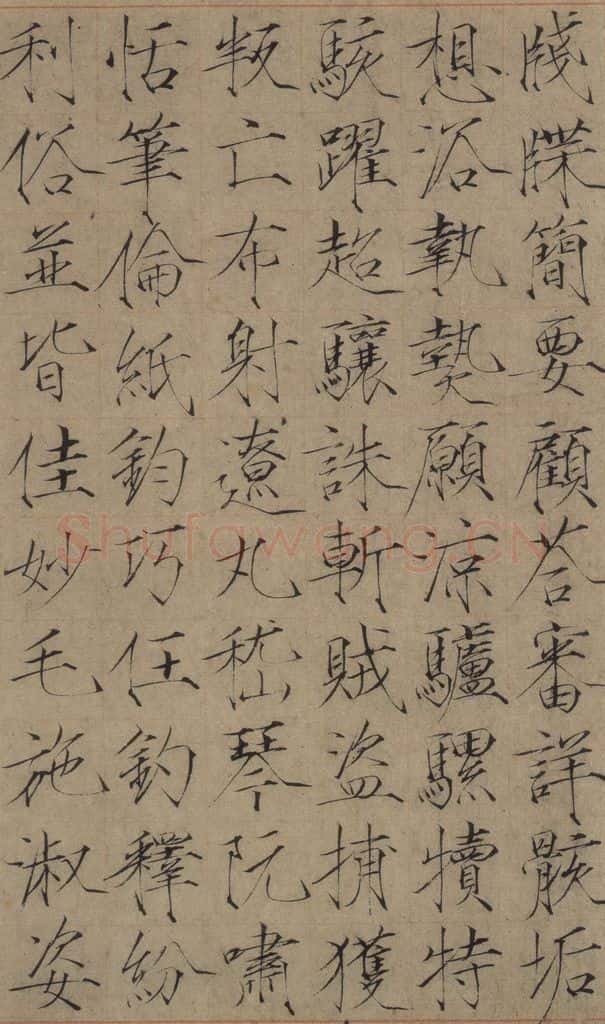 牋牒簡要顧荅審詳骸垢
想浴執熱願涼驢騾犢特
駭躍超驤誅斬賊盜捕獲
叛亡布射遼丸嵇琴阮嘯
恬筆倫紙鈞巧任釣釋紛
利俗並皆佳妙毛施淑姿
Shufawang.CN